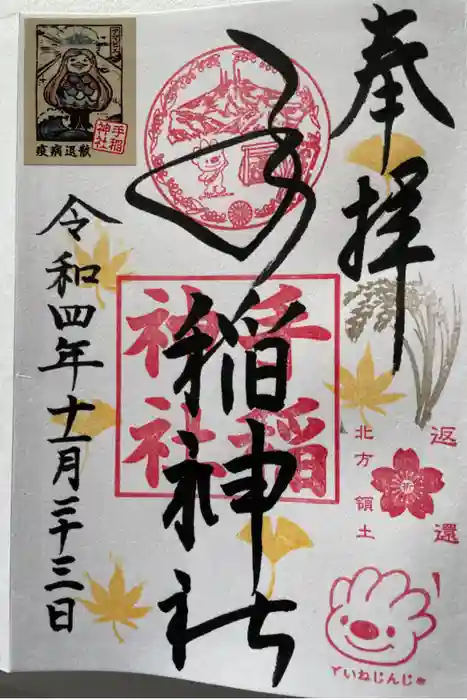 奉拝
手稲神社
手稲
神社
令和四年十一月二十三日
アマビエ
手稲
神社
疫病退散
返還
北方領土
ていねじんじゃ